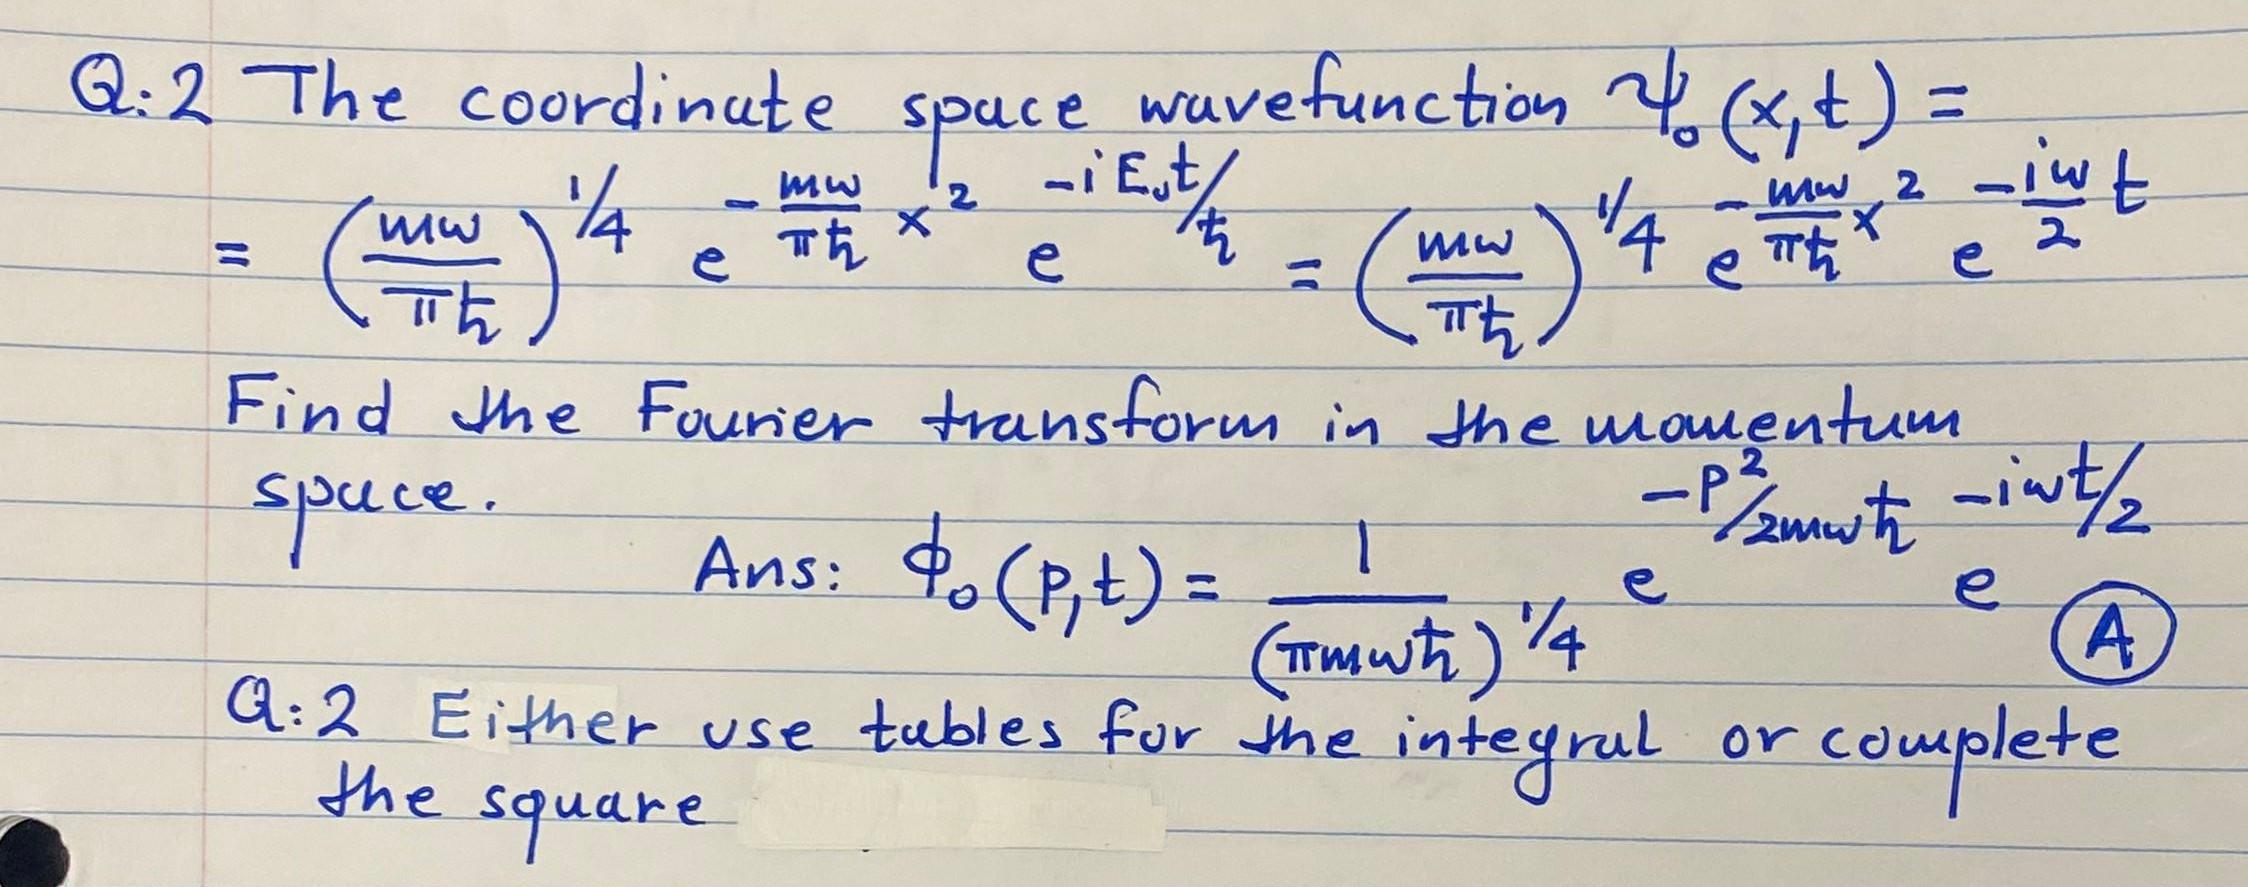 Q:2 The coordinate space wavefunction ψ₀(x,t) =
= (mω/πħ)^1/4 e^-mω/πħ x² e^-iE₀t/ħ = (mω/πħ)^1/4 e^-mω/πħ x² e^-iω/2 t
Find the Fourier transform in the momentum
space.
Ans: ϕ₀(p,t) = 1/(πmωħ)^1/4 e^-p²/2mωħ e^-iωt/2 (A)
Q:2 Either use tables for the integral or complete
the square